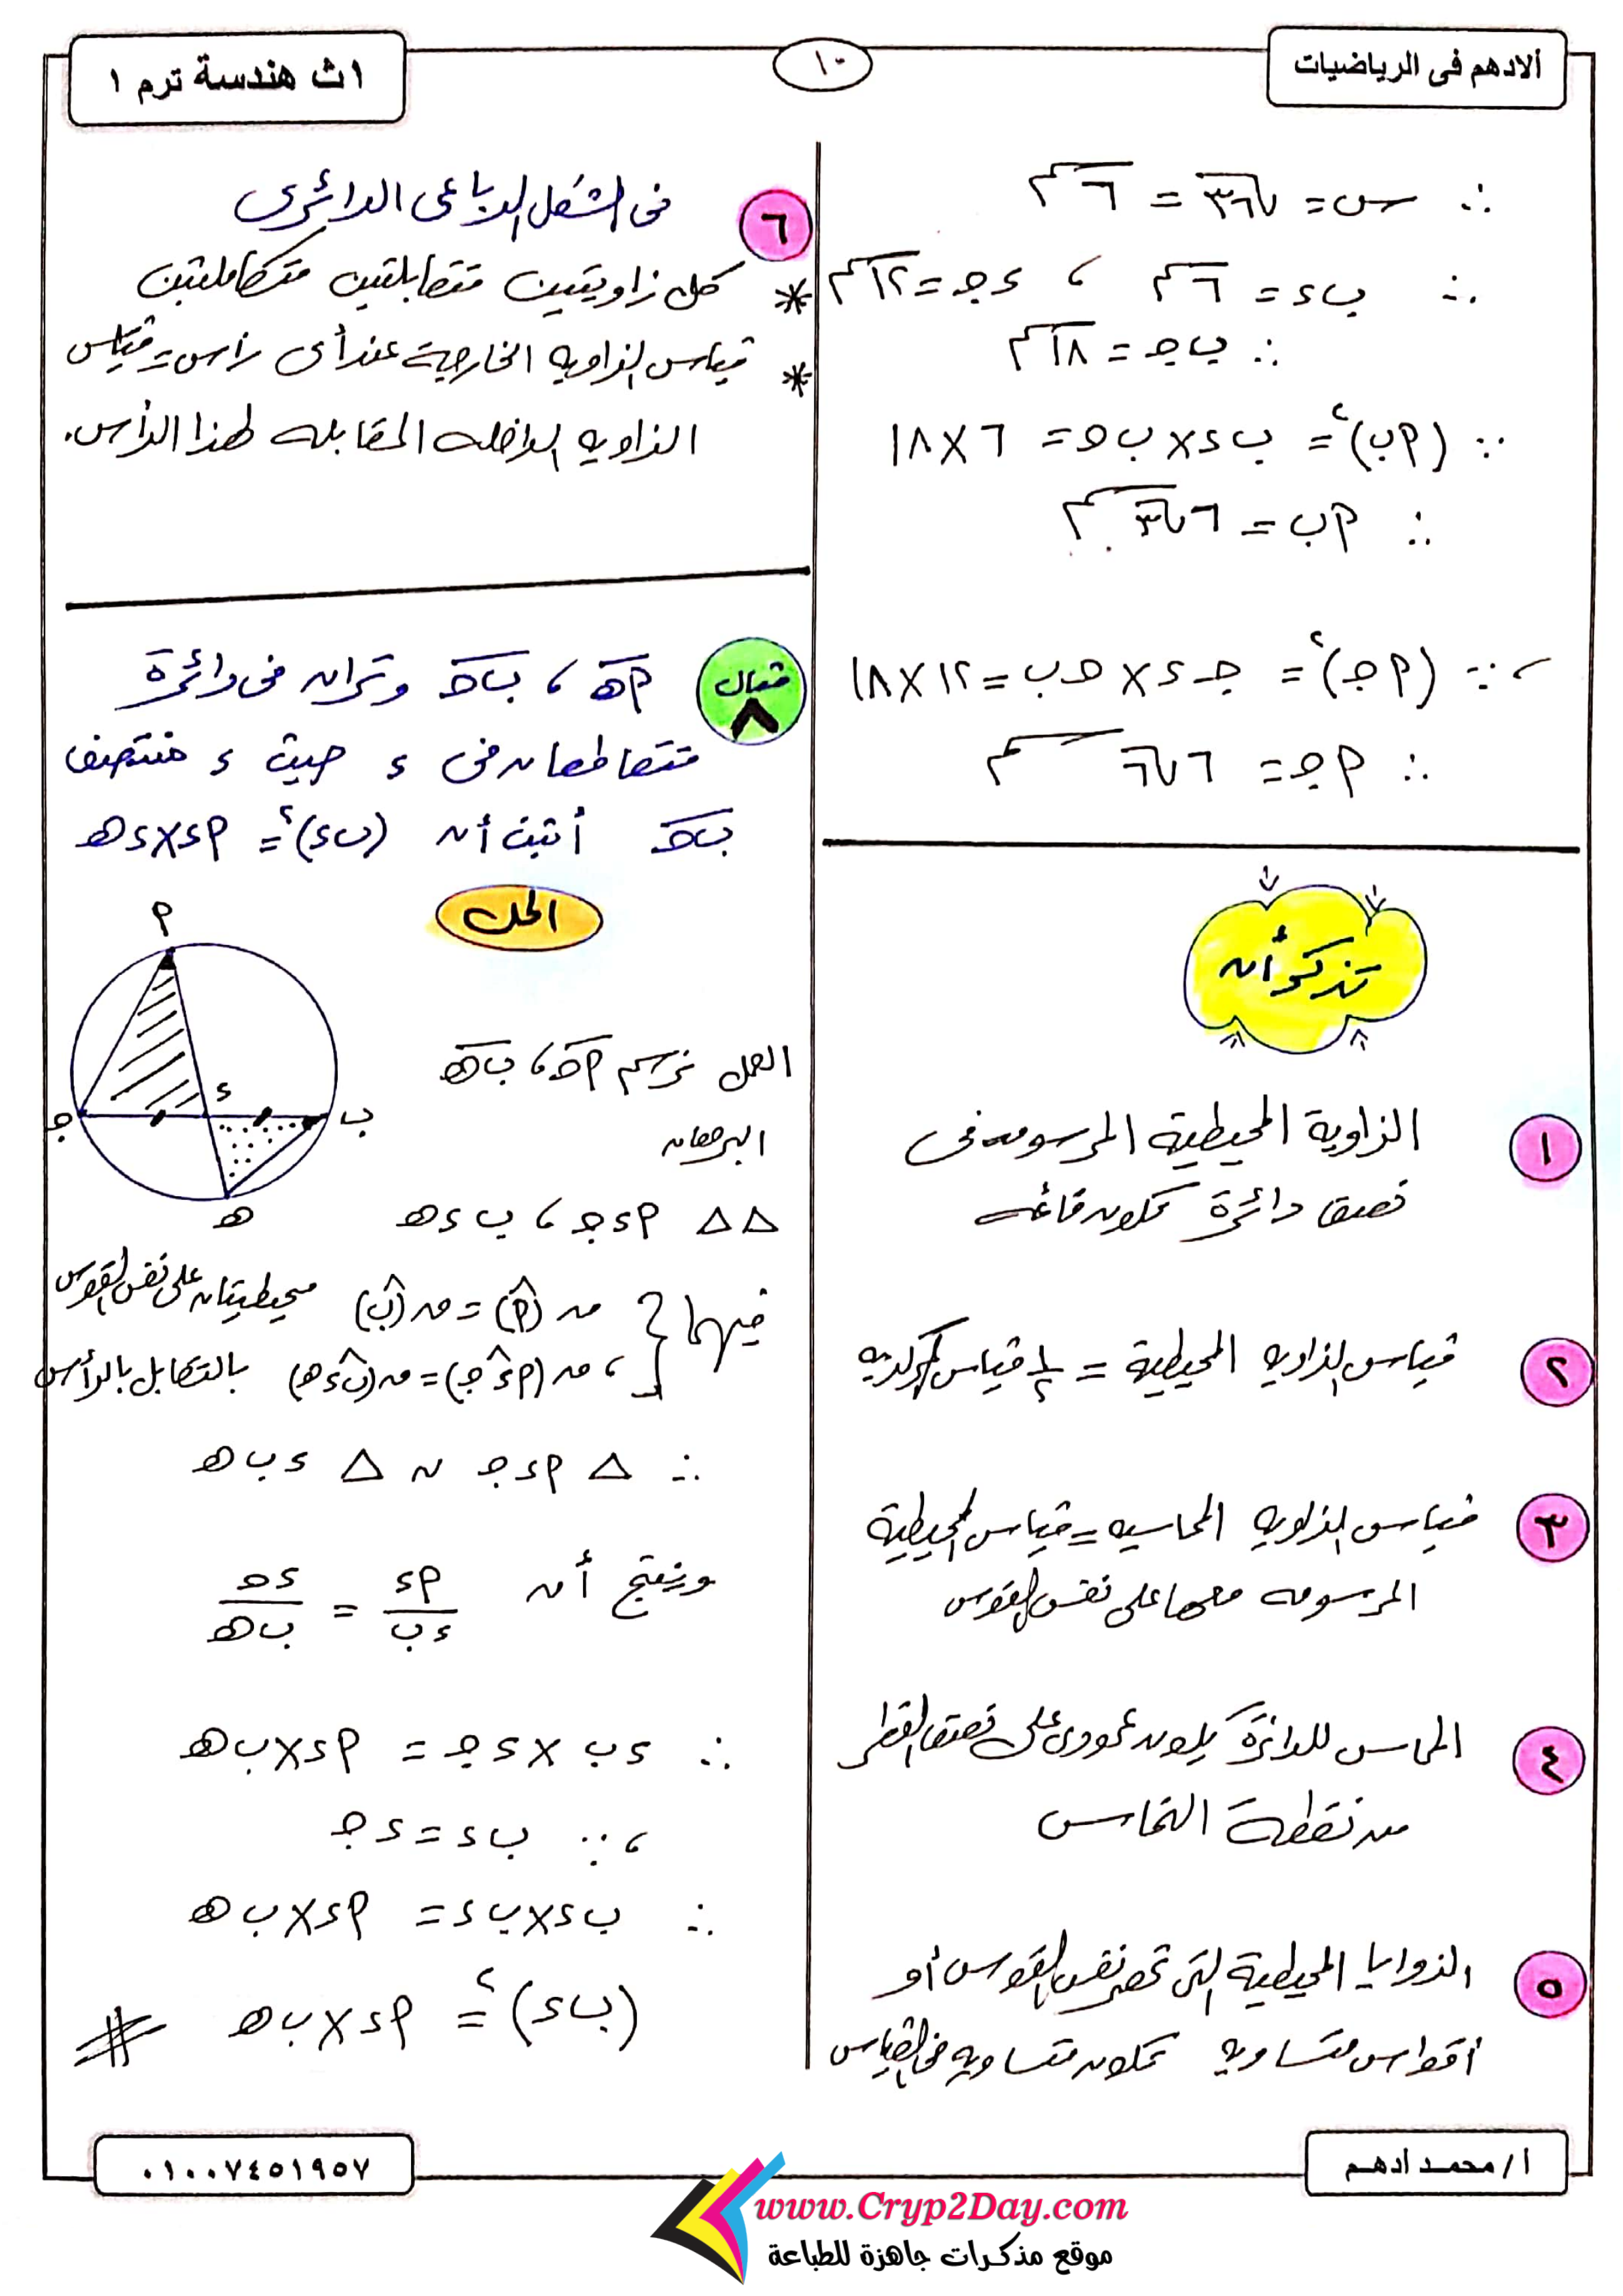 ألادهم فى الرياضيات
١٠
١ث هندسة ترم ١
∴ س = √٣٦ = ٦ سم
∴ ب ء = ٦ سم ، ء جـ = ١٢ سم
∴ ب جـ = ١٨ سم
∵ (أب)² = ب ء × ب جـ = ٦ × ١٨
∴ أب = ٦√٣ سم
، ∵ (أجـ)² = جـ ء × جـ ب = ١٢ × ١٨
∴ أجـ = ٦√٦ سم
تذكر أن
١ الزاوية المحيطية المرسومه فى
نصف دائرة تكون قائمه
٢ قياس الزاويه المحيطية = ١/٢ قياس المركزيه
٣ قياس الزاويه المماسيه = قياس المحيطية
المرسومه معها على نفس القوس
٤ المماس للدائرة يكون عمودى على نصف القطر
من نقطة التماس
٥ الزوايا المحيطية التى تحصر نفس القوس أو
أقواس متساويه تكون متساويه فى القياس
٦ فى الشكل الرباعى الدائرى
* كل زاويتين متقابلتين متكاملتين
* قياس الزاويه الخارجية عند أى رأس = قياس
الزاويه الداخله المقابله لهذا الرأس.
مثال ٨ أهـ ، ب جـ وتران فى دائرة
متقاطعان فى ء حيث ء منتصف
ب جـ أثبت أن (ب ء)² = أ ء × ء هـ
الحل
أ
ء
جـ
ب
هـ
العمل نرسم أجـ ، ب هـ
البرهان
△△ أ ء جـ ، ب ء هـ
فيهما { ق(أ̂) = ق(ب̂) محيطيتان على نفس القوس
، ق(أ ء̂ جـ) = ق(ب ء̂ هـ) بالتقابل بالرأس
∴ △ أ ء جـ ~ △ ء ب هـ
وينتج أن أ ء / ء ب = ء جـ / ب هـ
∴ ء ب × ء جـ = أ ء × ب هـ
، ∵ ب ء = ء جـ
∴ ب ء × ب ء = أ ء × ب هـ
(ب ء)² = أ ء × ب هـ #
أ / محمد ادهم
٠١٠٠٧٤٥١٩٥٧
www.Cryp2Day.com
موقع مذكرات جاهزة للطباعة